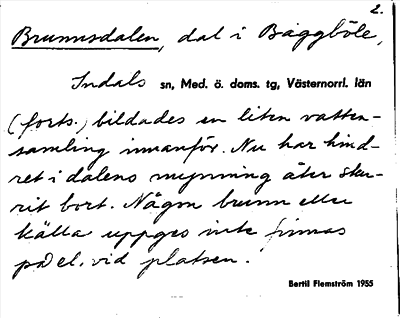 2.
Brunnsdalen, dal i Baggböle,
Indals sn, Med. ö. doms. tg, Västernorrl. län
(forts.) bildades en liten vatten-
samling innanför. Nu har hind-
ret i dalens mynning åter sku-
rit bort. Någon brunn eller
källa uppges inte finnas
på el. vid platsen.
Bertil Flemström 1955